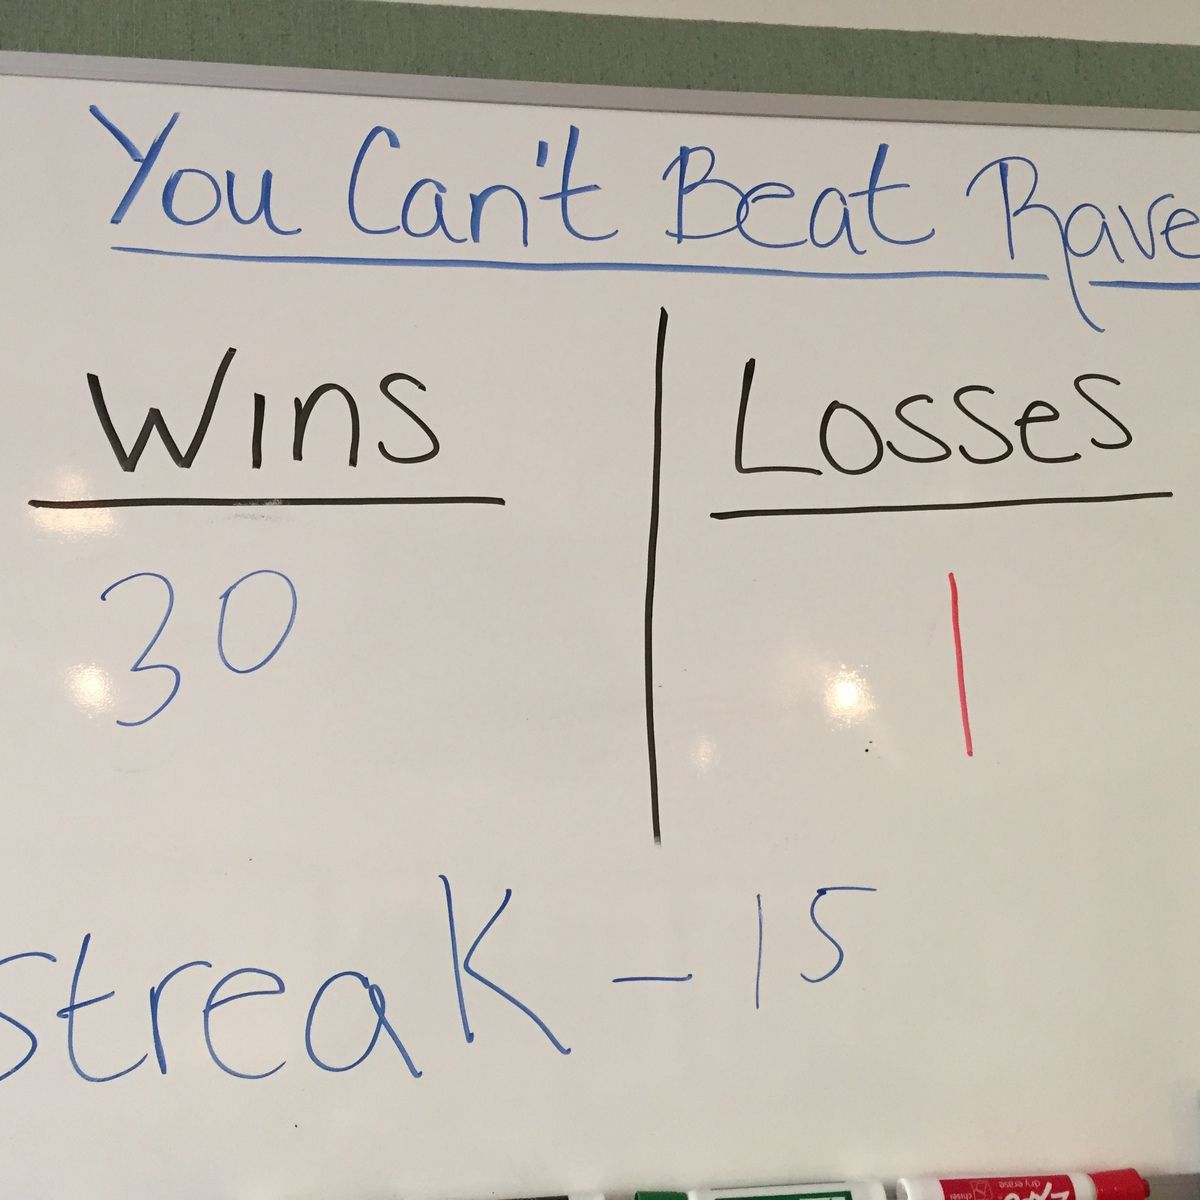 You Can't Beat Rave
Wins
Losses
30
1
streak - 15
dry erase
chisel